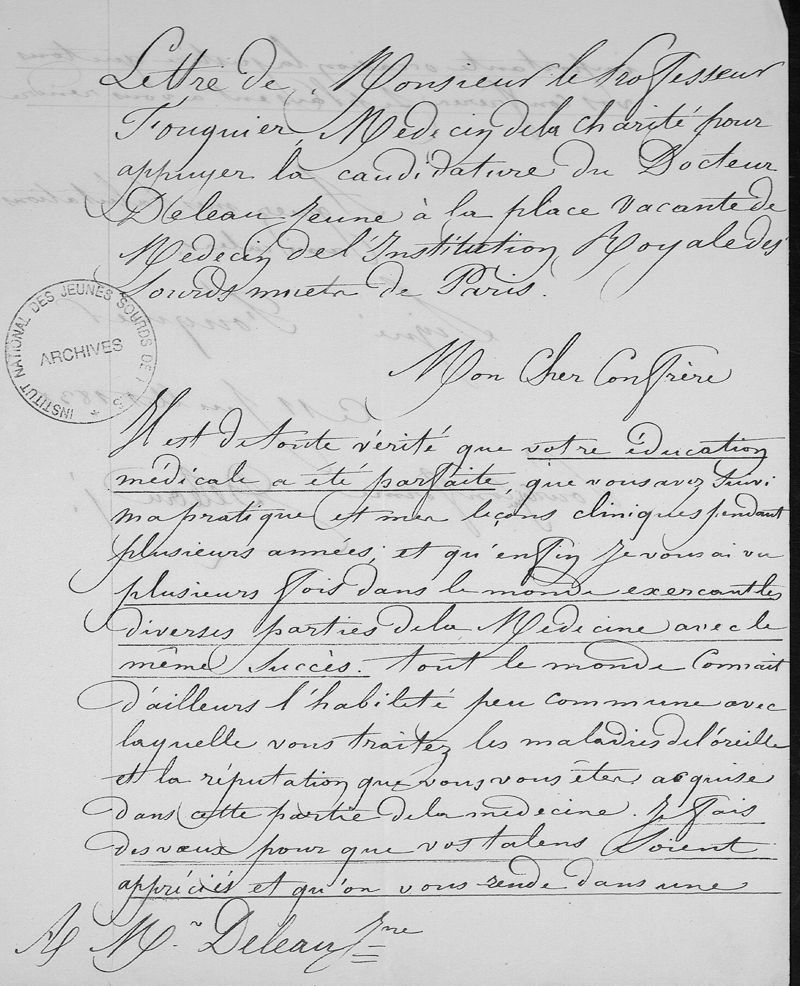 Lettre de Monsieur le Professeur
Fouquier, Medecin de la charité pour
appuyer la candidature du Docteur
Deleau Jeune à la place vacante de
Medecin de l'Institution Royale des
Sourds muets de Paris.
INSTITUT NATIONAL DES JEUNES SOURDS DE PARIS
ARCHIVES
Mon Cher Confrère
Il est de toute vérité que votre éducation
médicale a été parfaite, que vous avez suivi
ma pratique et mes leçons cliniques pendant
plusieurs années, et qu'enfin Je vous ai vu
plusieurs fois dans le monde exercant les
diverses parties de la Medecine avec le
même succès. tout le monde Connait
d'ailleurs l'habilité peu commune avec
laquelle vous traitez les maladies de l'oreille
et la réputation que vous vous êtes acquise
dans cette partie de la medecine. Je fais
des vœux pour que vos talens soient
appréciés et qu'on vous rende dans une
A Mr. Deleau Jne